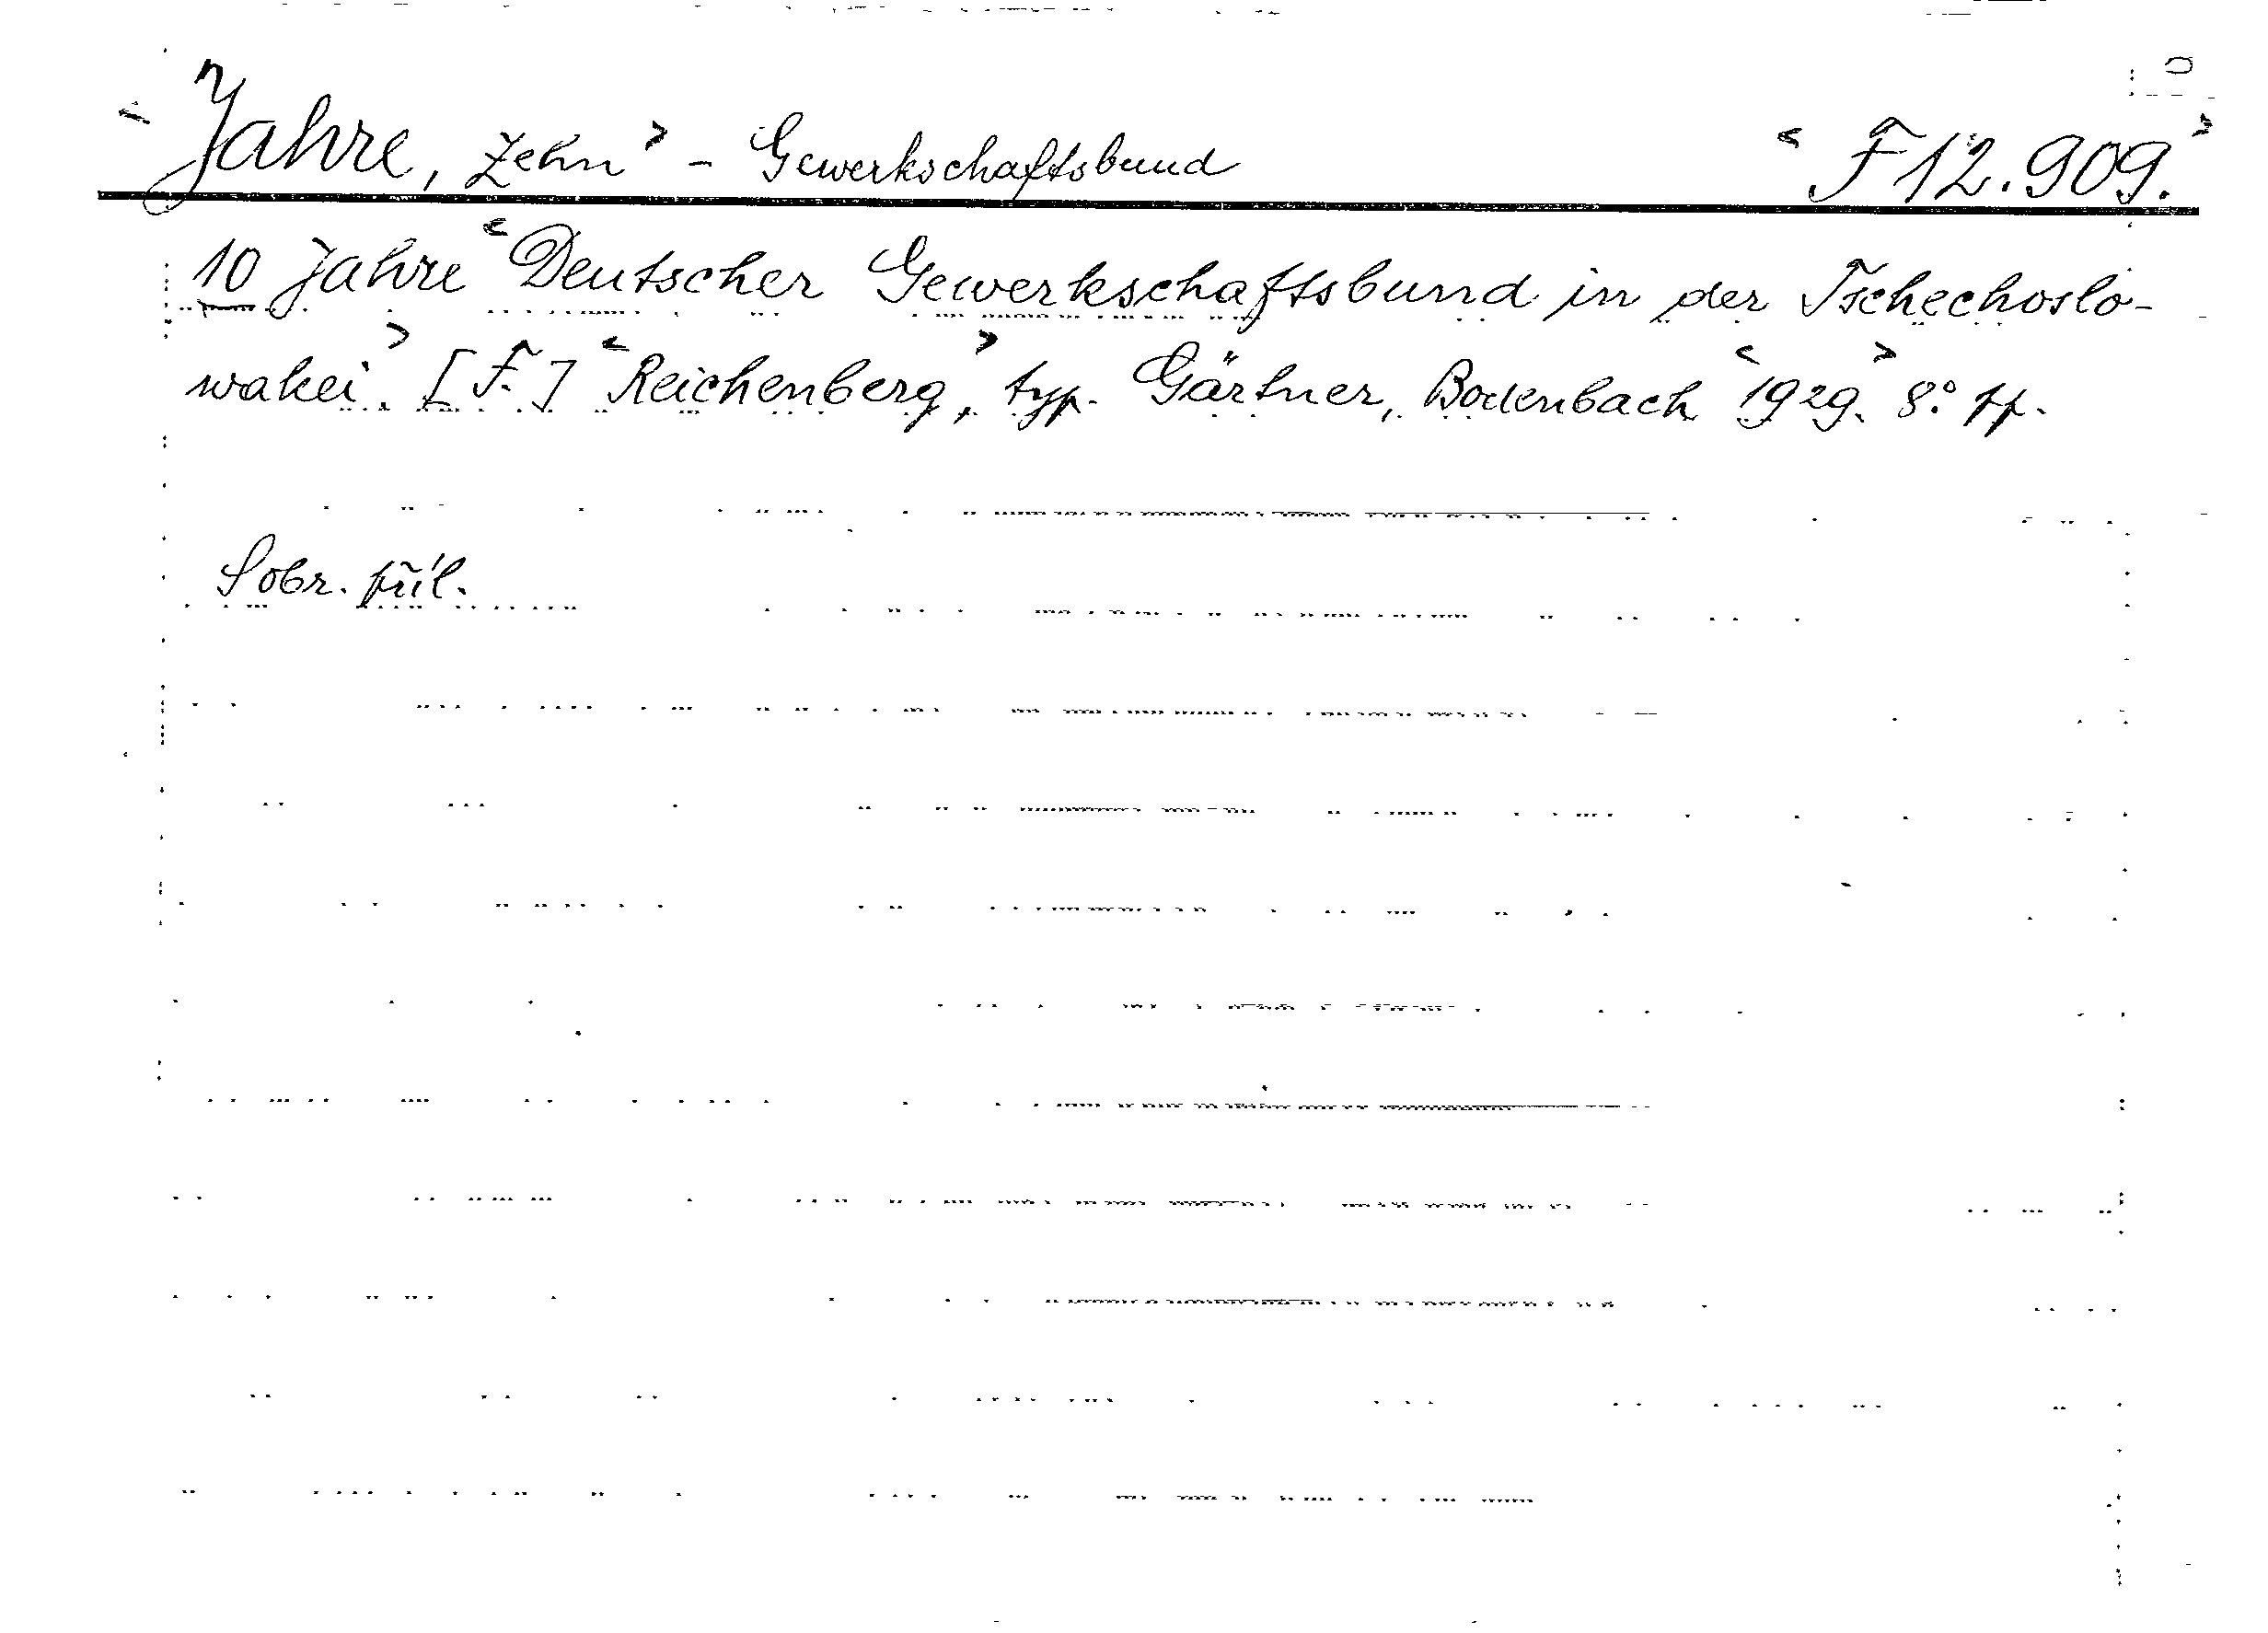 Jahre, zehn - Gewerkschaftsbund F 12.909.
10 Jahre Deutscher Gewerkschaftsbund in der Tschechoslo-
wakei. [F.] Reichenberg, typ. Gärtner, Bodenbach 1929. 8°.
Sobr. příl.